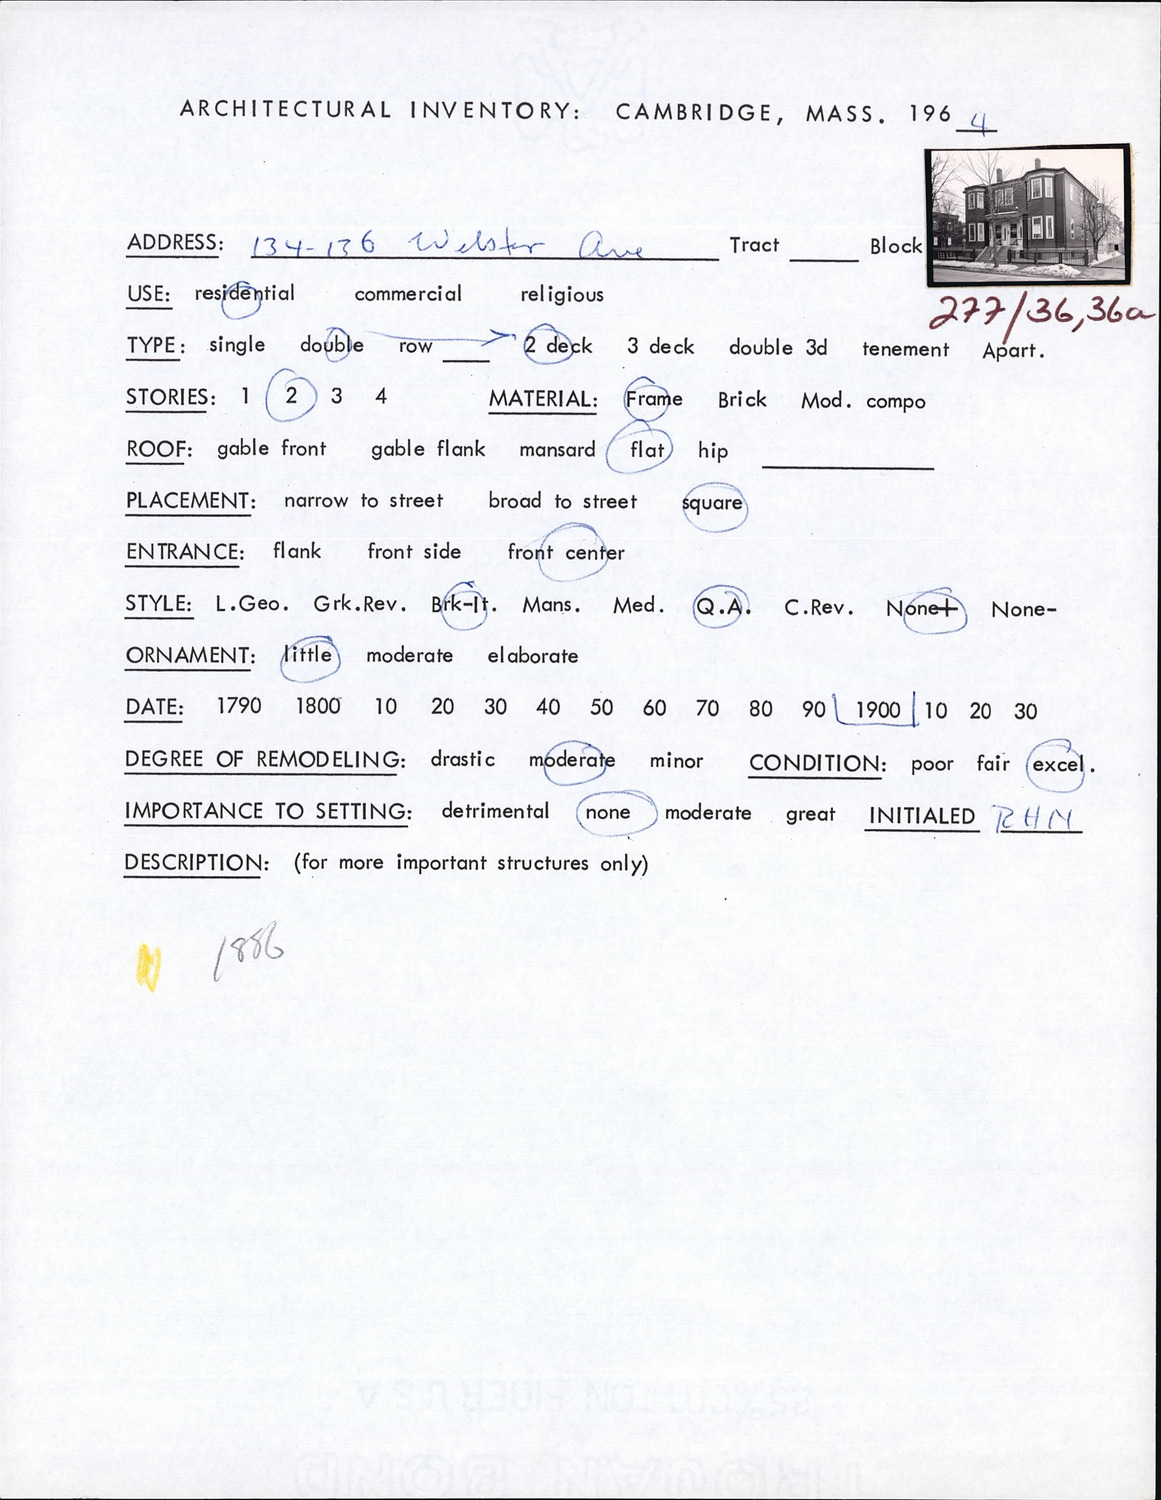 ARCHITECTURAL INVENTORY: CAMBRIDGE, MASS. 1964
ADDRESS: 134-136 Webster Ave Tract Block
277/36,36a
USE: residential commercial religious
TYPE: single double row 2 deck 3 deck double 3d tenement Apart.
STORIES: 1 2 3 4 MATERIAL: Frame Brick Mod. compo
ROOF: gable front gable flank mansard flat hip
PLACEMENT: narrow to street broad to street square
ENTRANCE: flank front side front center
STYLE: L.Geo. Grk.Rev. Brk-It. Mans. Med. Q.A. C.Rev. None+ None-
ORNAMENT: little moderate elaborate
DATE: 1790 1800 10 20 30 40 50 60 70 80 90 1900 10 20 30
DEGREE OF REMODELING: drastic moderate minor CONDITION: poor fair excel.
IMPORTANCE TO SETTING: detrimental none moderate great INITIALED RHM
DESCRIPTION: (for more important structures only)
1886